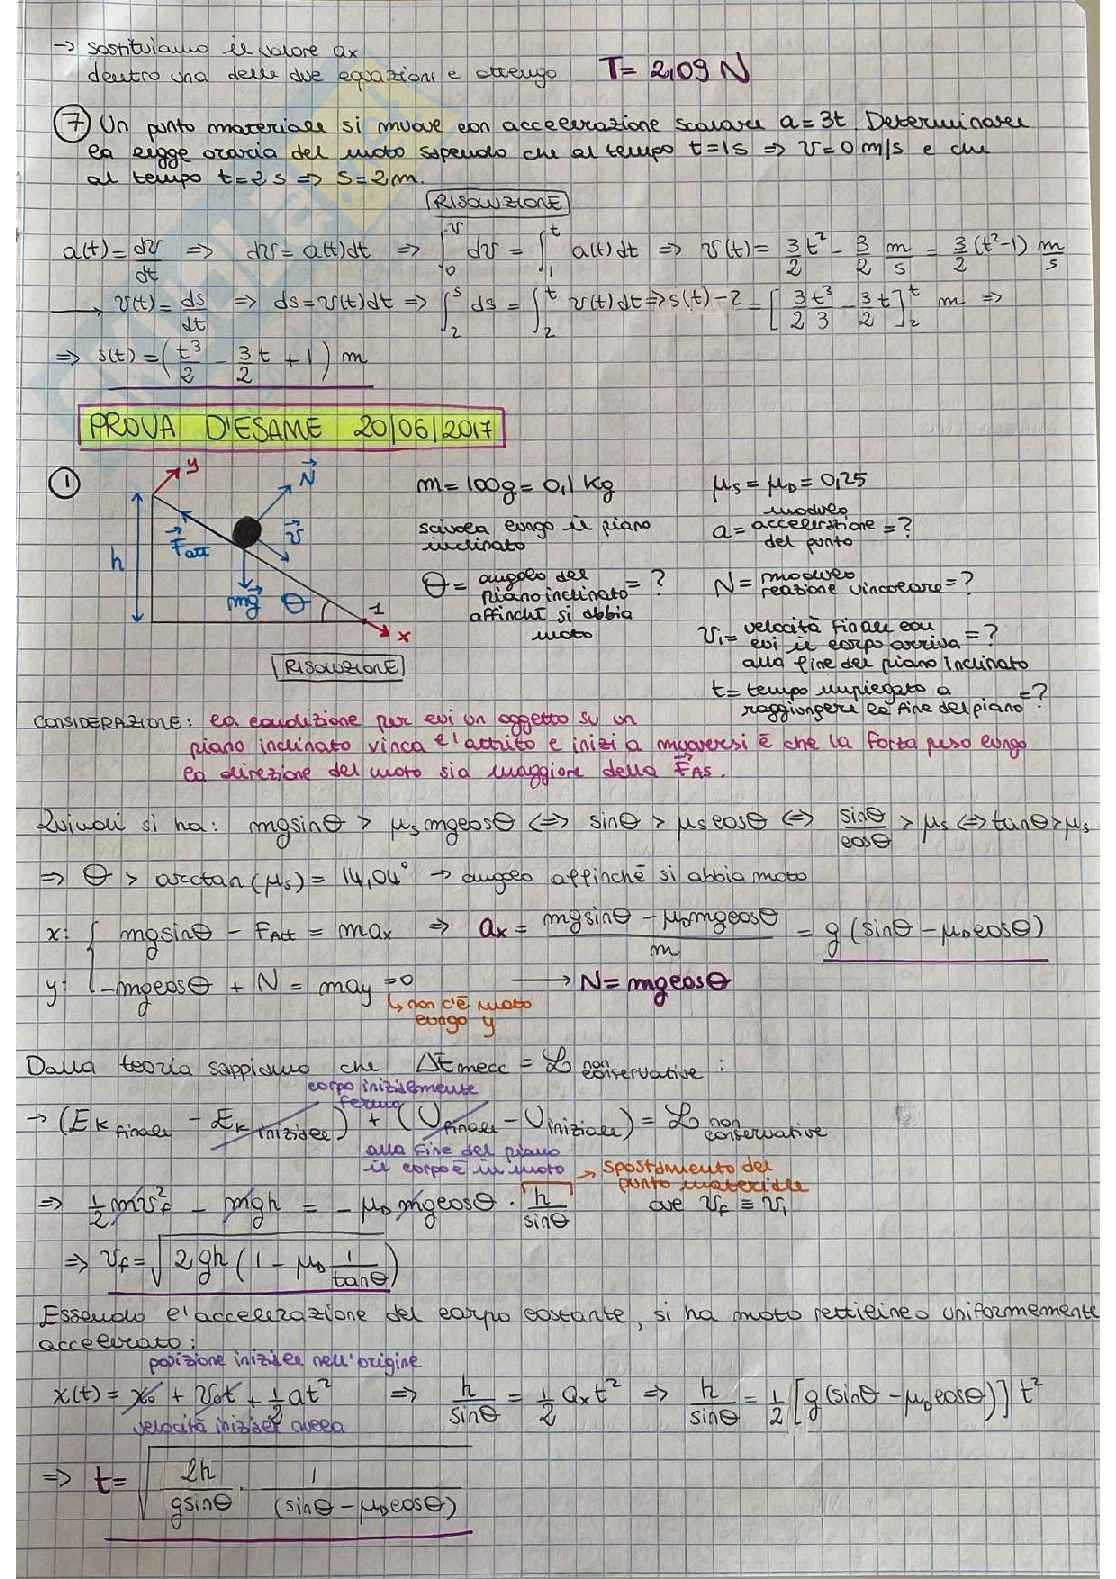 → sostituiamo il valore ax
dentro una delle due equazioni e ottengo T = 2,09 N
⑦ Un punto materiale si muove con accelerazione scalare a = 3t. Determinare
la legge oraria del moto sapendo che al tempo t=1s ⇒ v=0 m/s e che
al tempo t=2s ⇒ s=2m.
RISOLUZIONE
a(t) = dv/dt ⇒ dv = a(t)dt ⇒ ∫₀^v dv = ∫₁^t a(t)dt ⇒ v(t) = 3/2 t² - 3/2 m/s = 3/2 (t²-1) m/s
→ v(t) = ds/dt ⇒ ds = v(t)dt ⇒ ∫₂^s ds = ∫₂^t v(t)dt ⇒ s(t) - 2 = [3/2 t³/3 - 3/2 t]₂^t m ⇒
⇒ s(t) = (t³/2 - 3/2 t + 1) m
PROVA D'ESAME 20/06/2017
①
y
N
v
Fatt
h
mg
θ
1
x
m = 100g = 0,1 Kg
scivola lungo il piano
inclinato
θ = angolo del
piano inclinato = ?
affinché si abbia
moto
μs = μD = 0,25
a = modulo
accelerazione = ?
del punto
N = modulo
reazione vincolare = ?
v₁ = velocità finale con
cui il corpo arriva = ?
alla fine del piano inclinato
t = tempo impiegato a
raggiungere la fine del piano = ?
RISOLUZIONE
CONSIDERAZIONE: la condizione per cui un oggetto su un
piano inclinato vinca l'attrito e inizi a muoversi è che la forza peso lungo
la direzione del moto sia maggiore della FAS.
Quindi si ha: mgsinθ > μs mgcosθ ⇔ sinθ > μs cosθ ⇔ sinθ/cosθ > μs ⇔ tanθ > μs
⇒ θ > arctan(μs) = 14,04° → angolo affinché si abbia moto
x: { mgsinθ - FAtt = max ⇒ ax = (mgsinθ - μD mgcosθ)/m = g(sinθ - μD cosθ)
y: { -mgcosθ + N = may = 0 → N = mgcosθ
↳ non c'è moto
lungo y
Dalla teoria sappiamo che ΔEmecc = L non conservative :
corpo inizialmente
fermo
→ (Ek finale - Ek iniziale) + (Ufinale - Uiniziale) = L non conservative
alla fine del piano
il corpo è in moto
→ spostamento del
punto materiale
⇒ 1/2 mvf² - mgh = - μD mgcosθ · h/sinθ ove vf ≡ v₁
⇒ vf = √(2gh (1 - μD 1/tanθ))
Essendo l'accelerazione del corpo costante, si ha moto rettilineo uniformemente
accelerato:
posizione iniziale nell'origine
x(t) = x₀ + v₀t + 1/2 at² ⇒ h/sinθ = 1/2 ax t² ⇒ h/sinθ = 1/2 [g(sinθ - μD cosθ)] t²
velocità iniziale nulla
⇒ t = √(2h/gsinθ · 1/(sinθ - μD cosθ))